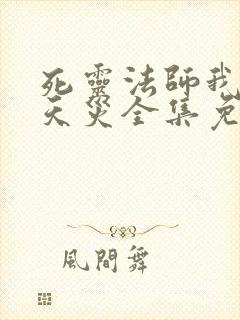 死靈法師我
天災全集免
風間舞